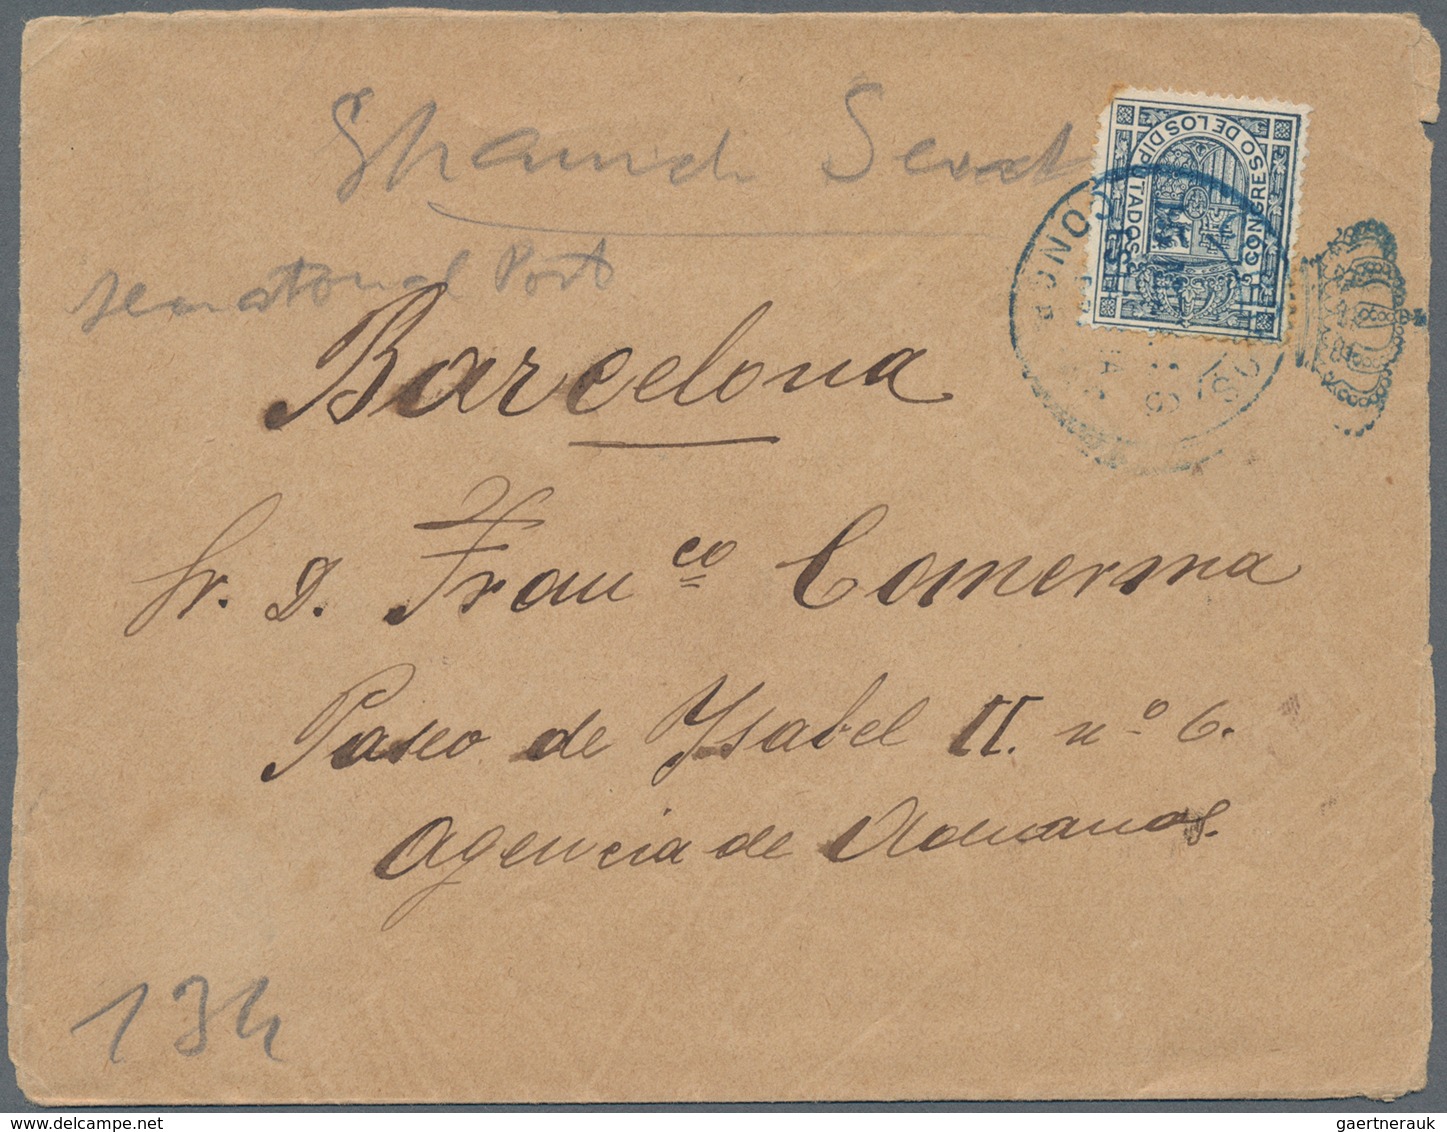 senatorial Post
CONGRESO DE LOS DIPUTADOS
Barcelona
Sr. D. Franco Comerma
Paseo de Ysabel II. nº 6.
Agencia de Aduanas.
134
gaertnerauk